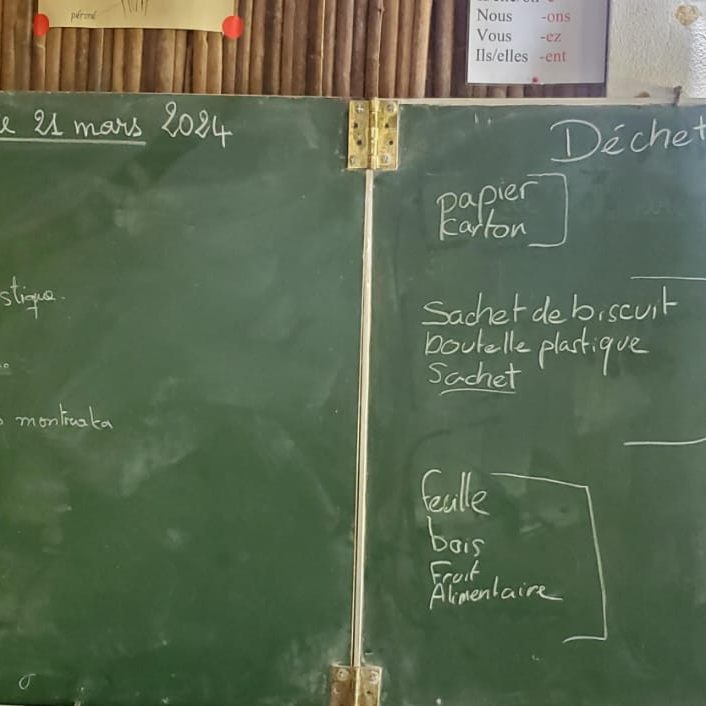 périné
Nous -ons
Vous -ez
Ils/elles -ent
le 21 mars 2024
stique.
montrata
Déchet
papier
Karton
Sachet de biscuit
bouteille plastique
Sachet
feuille
bois
Fruit
Alimentaire